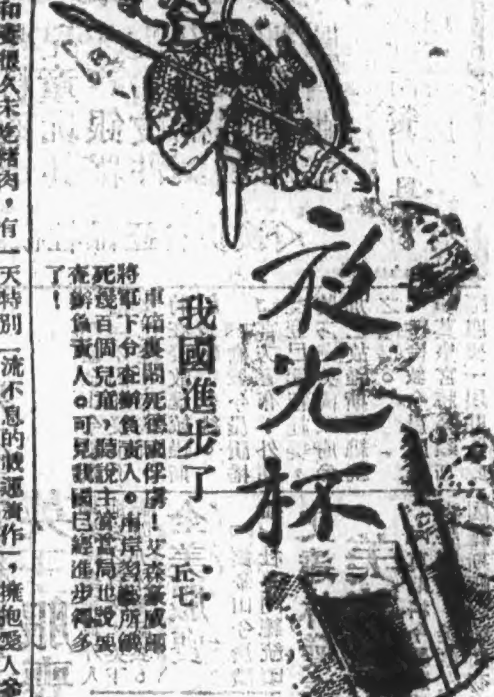 夜光杯
我國進步了
丘七
車箱裏悶死德國俘虜!艾森豪威爾
將軍下令查辦負責人。南岸習藝所餓
死幾百個兒童,聽說主管當局也說要
查辦負責人。可見我國已經進步得多
了!
和妻很久未吃豬肉,有一天特別
流不息的載運 作,擁抱愛人